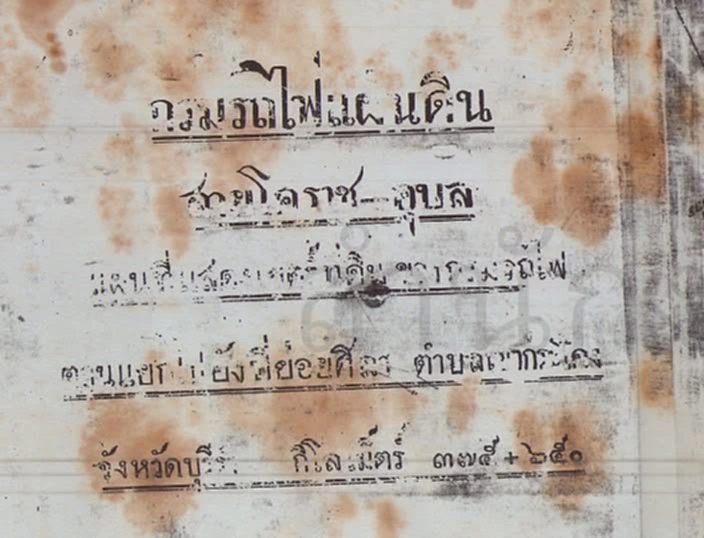 กรมรถไฟแผ่นดิน
สายโคราช-อุบล
แผนที่แสดงเขตที่ดินของกรมรถไฟ
ตอนแยกไปยังที่ย่อยศิลา ตำบลเขากระโดง
จังหวัดบุรี กิโลเม็ตร์ ๓๗๕+๖๕๐